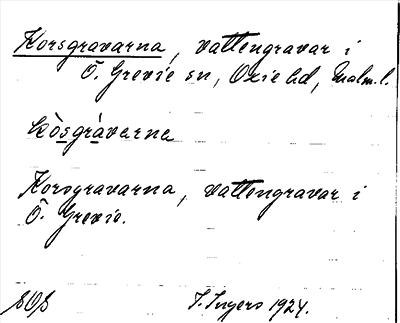 Korsgravarna, vattengravar i
Ö. Grevie sn, Oxie hd, Malm. l.
kòsgrávarna
Korsgravarna, vattengravar i
Ö. Grevie.
I. Ingers 1924.